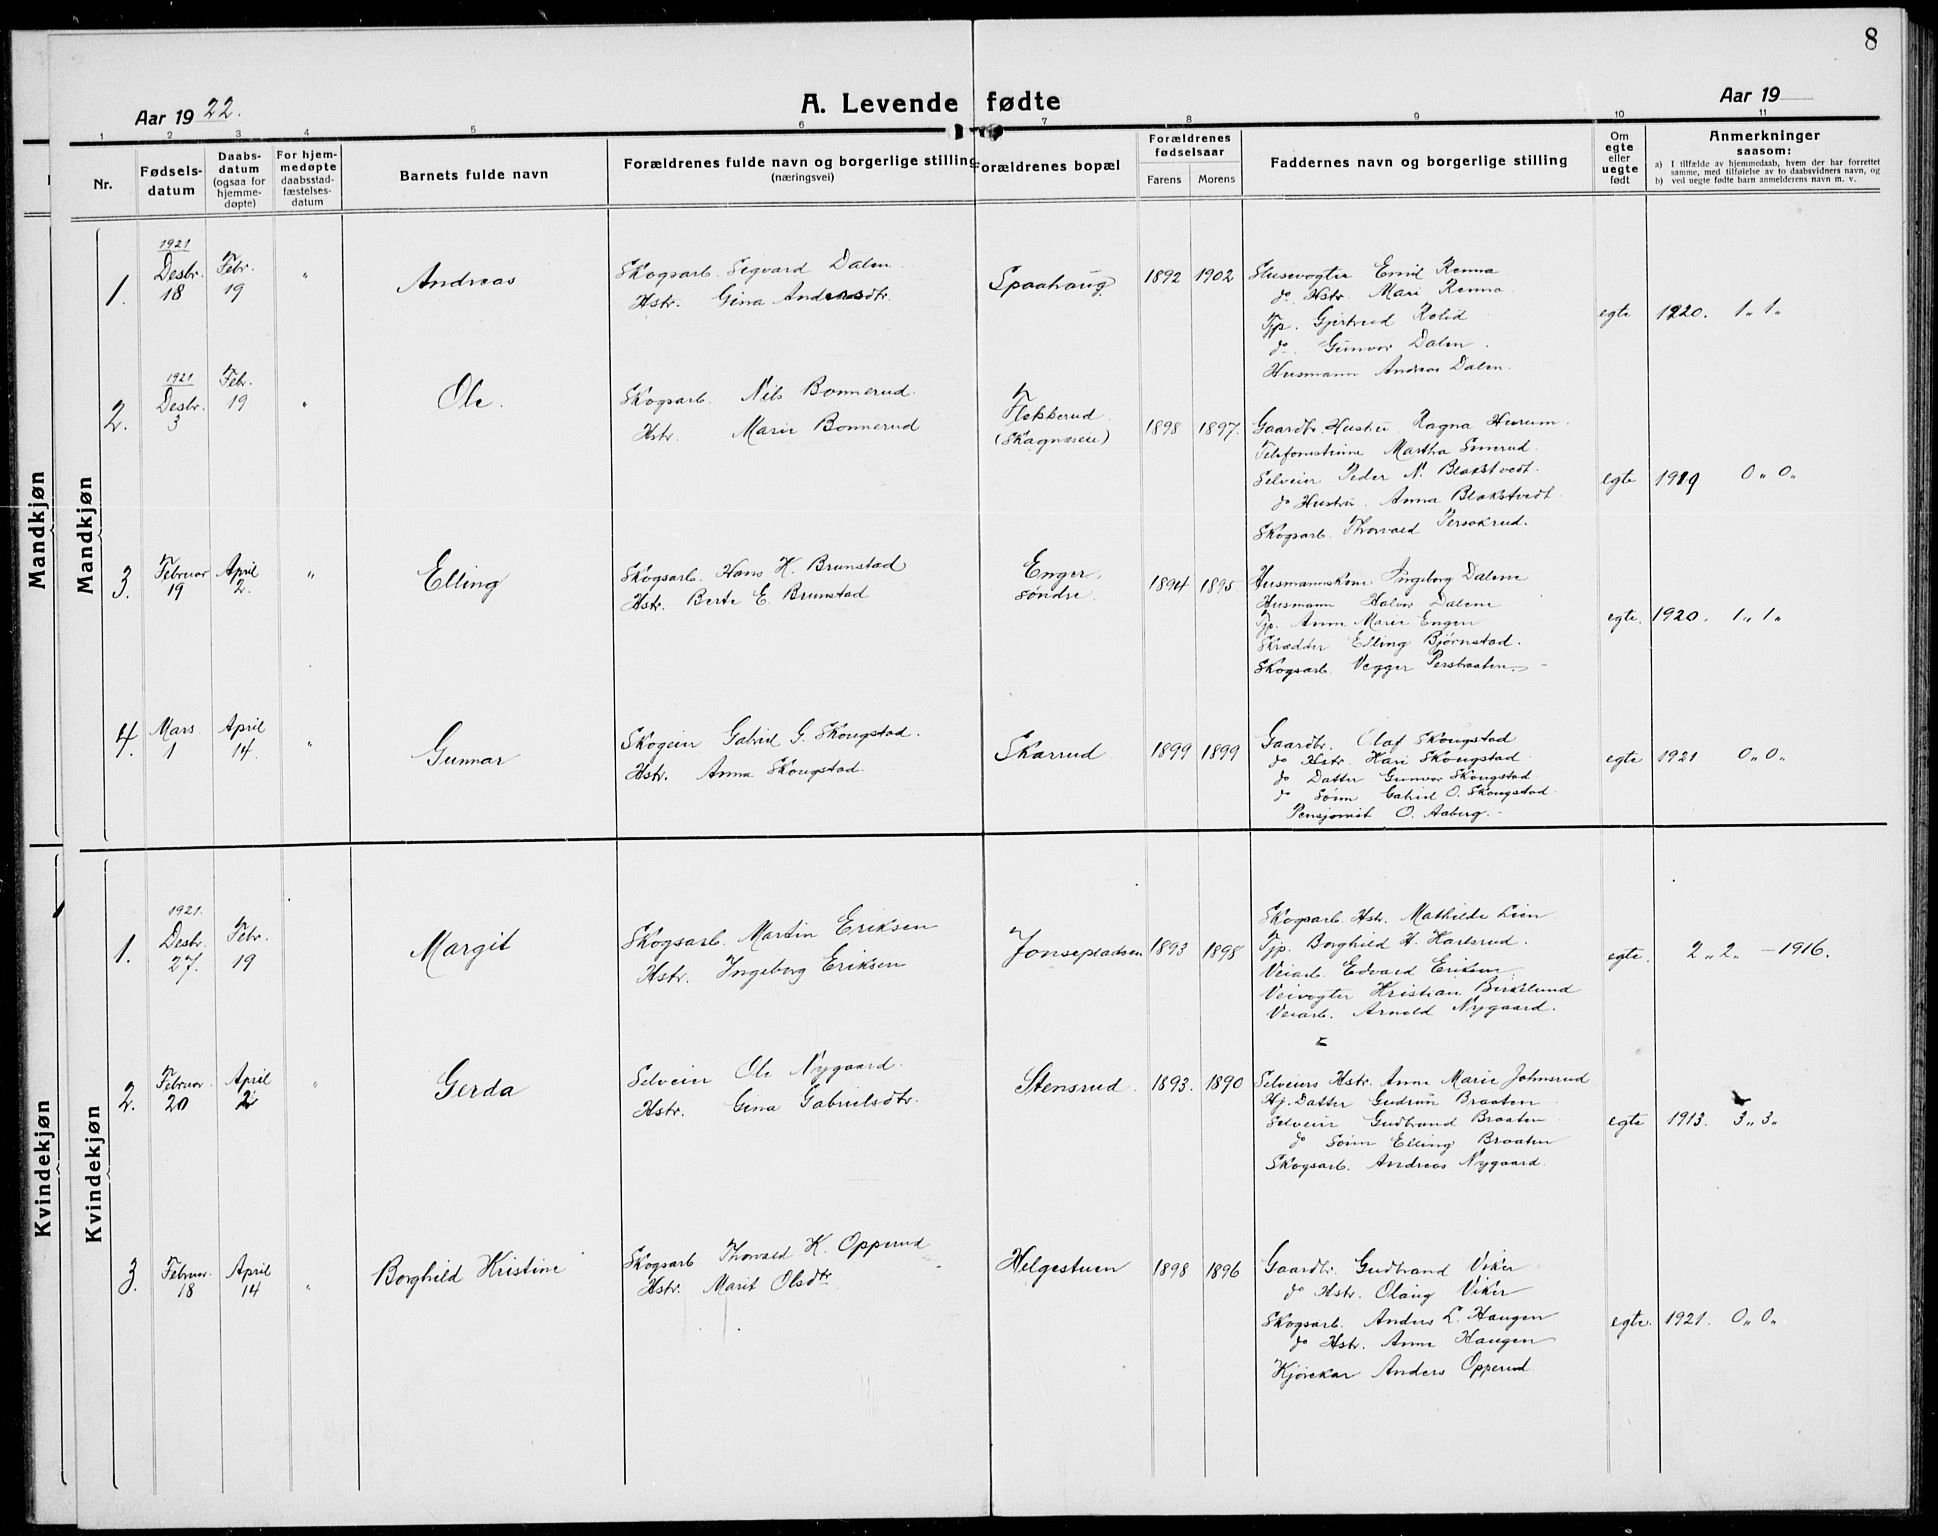 8
Aar 1922.
A. Levende fødte
Aar 19
1 2 3 4 5 6 7 8 9 10 11
Nr.
Fødsels-
datum
Daabs-
datum
(ogsaa for
hjemme-
døpte)
For hjem-
medøpte
daabsstad-
fæstelses-
datum
Barnets fulde navn
Forældrenes fulde navn og borgerlige stilling
(næringsvei)
Forældrenes bopæl
Forældrenes
fødselsaar
Farens Morens
Faddernes navn og borgerlige stilling
Om
egte
eller
uegte
født
Anmerkninger
saasom:
a) I tilfælde av hjemmedaab, hvem der har forrettet
samme, med tilføielse av to daabsvidners navn, og
b) ved uegte fødte barn anmelderens navn m. v.
Mandkjøn
Mandkjøn
1. 1921 Desbr. 18 Febr. 19 " Andreas
Skogsarb. Sigvard Dalen.
Hstr. Gina Andersdtr.
Spaahaug 1892 1902
Slusevogter Emil Renna
do. Hstr. Mari Renna
Tjp. Gjertrud Rolid
do. Gunvor Dalen.
Husmann Andreas Dalen.
egte 1920. 1 " 1 "
2. 1921 Desbr. 3 Febr. 19 " Ole.
Skogsarb. Nils Bonnerud.
Hstr. Marie Bonnerud
Flekkerud
(Skagnæseie)
1898 1897.
Gaardbr. Hustru Ragna Hurum.
Telefonistinne Martha Simerud.
Selveier Peder N. Blakstvedt.
do Hustru. Anna Blakstvedt.
Skogsarb. Thorvald Persokrud.
egte 1919 0 " 0 "
3. Februar 19 April 2. " Elling
Skogsarb. Hans H. Brunstad
Hstr. Berte E. Brunstad
Enger,
søndre.
1894 1895
Husmannskone Ingeborg Dalene
Husmann Halvor Dalene
Tjp. Anne Marie Engen
Skrædder Elling Bjørnstad.
Skogsarb. Vegger Persbraaten.
egte. 1920. 1 " 1 "
4. Mars 1 April 14. " Gunnar
Skogeier Gabriel G. Skougstad.
Hstr. Anna Skougstad.
Skarrud 1899 1899
Gaardbr. Olaf Skougstad
do Hstr. Kari Skougstad
do Datter Gunvor Skougstad
do Sønn Gabriel O. Skougstad.
Pensjonist O. Aaberg.
egte 1921 0 " 0 "
Kvindekjøn
Kvindekjøn
1. 1921. Desbr. 27. Febr. 19 Margit
Skogsarb. Martin Eriksen
Hstr. Ingeborg Eriksen
Jonsepladsen 1893 1898
Skogsarb. Hstr. Mathilde Lien
Tjp. Borghild H. Karlsrud.
Veiarb. Edvard Eriksen
Veivogter Kristian Birkelund
Veiarb. Arnold Nygaard.
egte. 2 " 2 " - 1916.
2. Februar. 20 April 2 " Gerda
Selveier Ole Nygaard.
Hstr. Gina Gabrielsdtr.
Stensrud. 1893. 1890
Selveiers Hstr. Anne Marie Johnsrud
Hj. Datter Gudrun Braaten
Selveier Gudbrand Braaten
do Sønn Elling Braaten
Skogsarb. Andreas Nygaard.
egte 1913. 3 " 3 "
3. Februar. 18 April 14 " Borghild Kristine
Skogsarb Thorvald K. Opperud
Hstr. Marit Olsdtr.
Helgestuen 1898 1896
Gaardbr. Gudbrand Viker
do Hstr. Olaug Viker
Skogsarb. Anders L. Haugen
do Hstr. Anne Haugen
Kjørekar Anders Opperud.
egte. 1921. 0 " 0 "